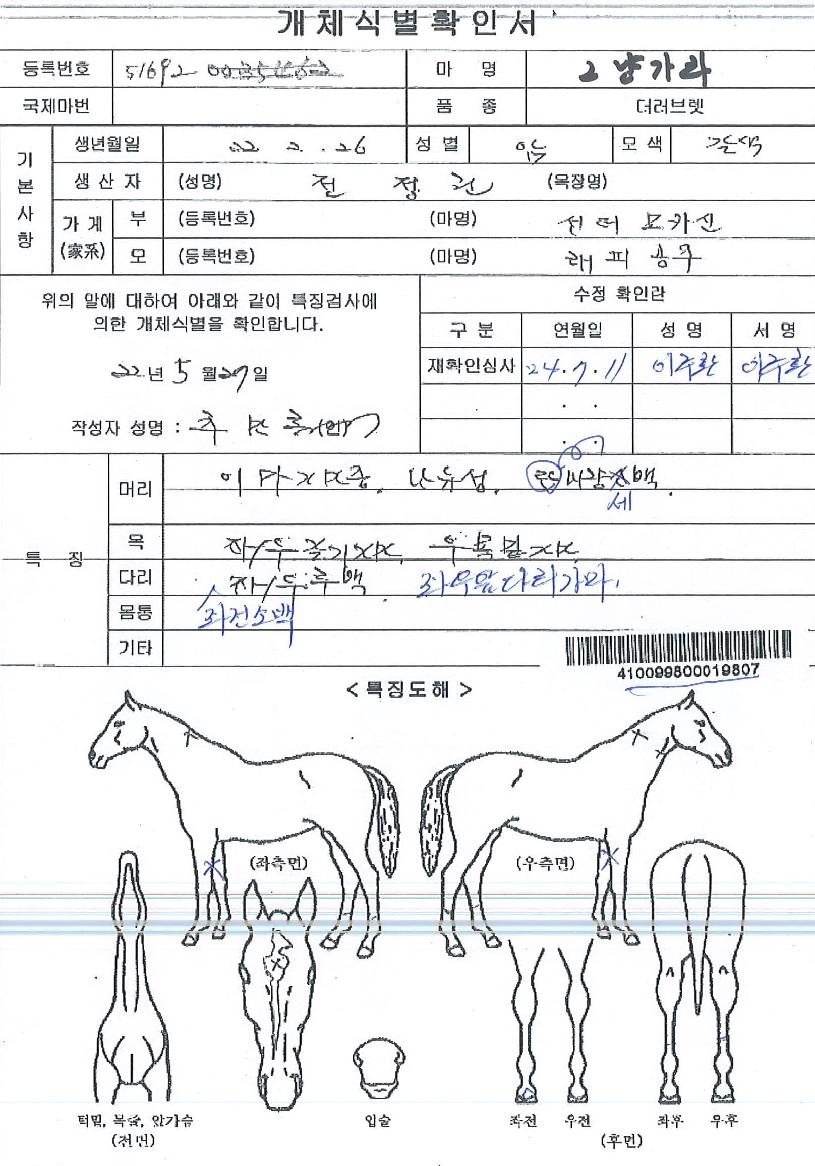 개체식별확인서
등록번호 51692 마 명 그냥가라
국제마번 품 종 더러브렛
기본사항
생년월일 22 2 . 26 성 별 암 모 색 갈색
생 산 자 (성명) 전 정 (목장명)
가 계 (家系) 부 (등록번호) (마명) 선더 모카신
모 (등록번호) (마명) 래피 공주
위의 말에 대하여 아래와 같이 특징검사에
의한 개체식별을 확인합니다.
22년 5 월 27 일
작성자 성명 :
수정 확인란
구 분 연월일 성 명 서 명
재확인심사 24.7.11 이주환 이주환
. .
. .
특 징
머리 이마 유성. 백.
세
목
다리 좌우앞다리가마.
몸통 좌전소백
기타
410099800019807
< 특징도해 >
(좌측면) (우측면)
턱밑, 목줄, 앞가슴 입술 좌전 우전 좌후 우후
(전면) (후면)